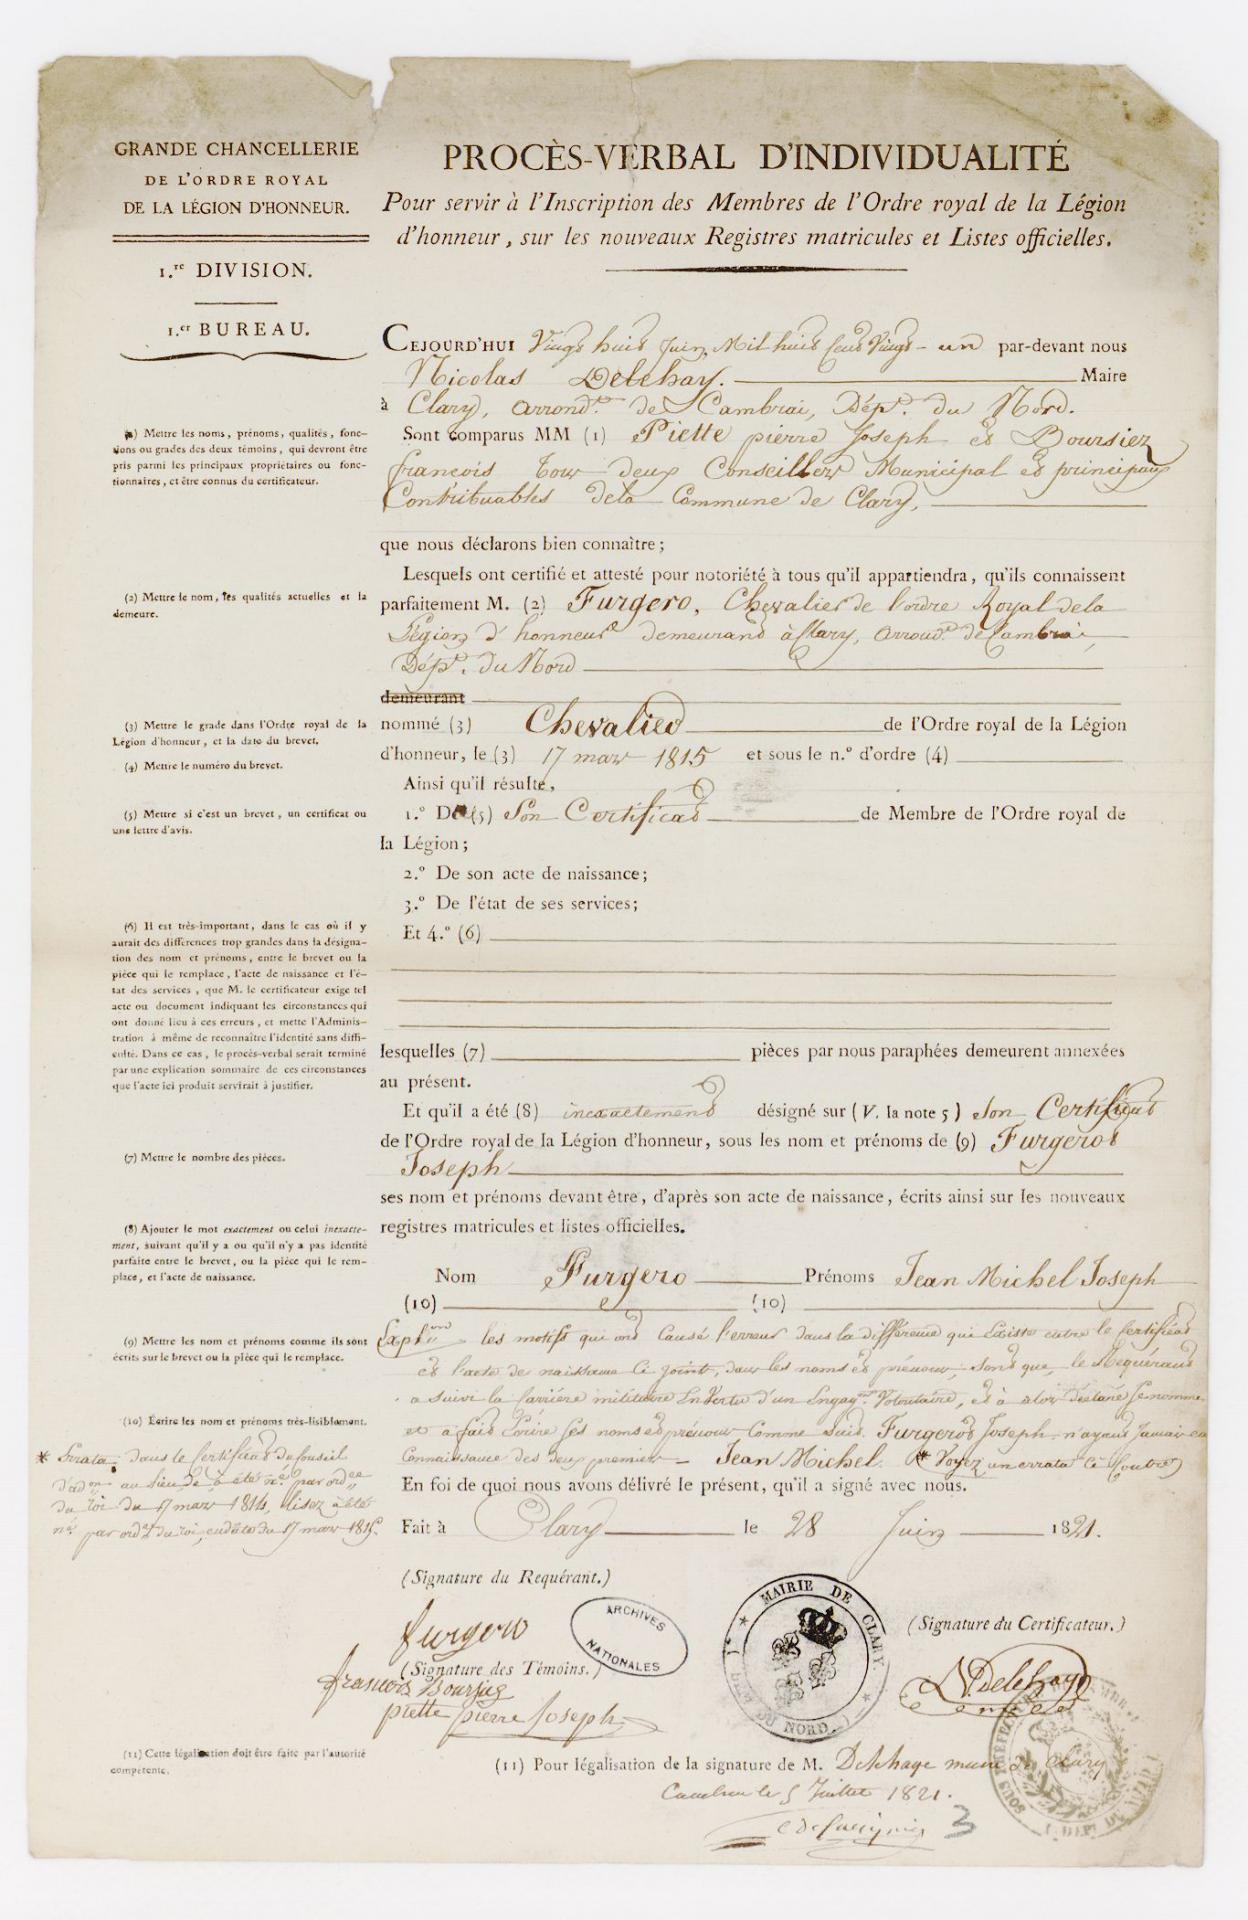 GRANDE CHANCELLERIE
DE L'ORDRE ROYAL
DE LA LÉGION D'HONNEUR.
1.re DIVISION.
1.er BUREAU.
PROCÈS-VERBAL D'INDIVIDUALITÉ
Pour servir à l'Inscription des Membres de l'Ordre royal de la Légion
d'honneur, sur les nouveaux Registres matricules et Listes officielles.
CEJOURD'HUI Vingt huit Juin, Mil huit Cent Vingt-un par-devant nous
Nicolas Delehay. Maire
à Clary, arrond.t de Cambrai, Dép.t du Nord.
Sont comparus MM (1) Piette pierre Joseph et Boursiez
francois tous deux Conseillers Municipal et principaux
Contribuables dela Commune de Clary,
que nous déclarons bien connaître;
Lesquels ont certifié et attesté pour notoriété à tous qu'il appartiendra, qu'ils connaissent
parfaitement M. (2) Furgero, Chevalier de l'ordre Royal dela
Légion d'honneur demeurant à Clary, arrond.t de Cambrai,
Dép.t du Nord
demeurant
nommé (3) Chevalier de l'Ordre royal de la Légion
d'honneur, le (3) 17 mars 1815 et sous le n.o d'ordre (4)
Ainsi qu'il résulte,
1.o De (5) Son Certificat de Membre de l'Ordre royal de
la Légion;
2.o De son acte de naissance;
3.o De l'état de ses services;
Et 4.o (6)
lesquelles (7) pièces par nous paraphées demeurent annexées
au présent.
Et qu'il a été (8) inexactement désigné sur (V. la note 5) Son Certificat
de l'Ordre royal de la Légion d'honneur, sous les nom et prénoms de (9) Furgerot
Joseph
ses nom et prénoms devant être, d'après son acte de naissance, écrits ainsi sur les nouveaux
registres matricules et listes officielles.
Nom Furgero Prénoms Jean Michel Joseph
(10) (10)
les motifs qui ont Causé l'erreur dans la différence qui Existe entre le Certificat
et l'acte de naissance Ci joint, dans les noms et prénoms, sont que, le Réquérant
a suivi la Carrière militaire En Vertu d'un Engag.mt Volontaire, et à alors déclaré Se nommer
et à fait Ecrire Ses noms et prénoms Comme Suit. Furgerot Joseph. n'ayant Jamais eu
Connaissance des deux premiers Jean Michel. * Voyez un errata Ci Contre
En foi de quoi nous avons délivré le présent, qu'il a signé avec nous.
Fait à Clary le 28 Juin 1821.
(Signature du Requérant.)
furgero
(Signature des Témoins.)
francois Boursiez
piette pierre Joseph
(Signature du Certificateur.)
N Delehaye
ARCHIVES NATIONALES
MAIRIE DE CLARY.
DU NORD
(11) Pour légalisation de la signature de M. Delehaye maire de Clary
Cambrai le 5 Juillet 1821.
3
(1) Mettre les noms, prénoms, qualités, fonc-
tions ou grades des deux témoins, qui devront être
pris parmi les principaux propriétaires ou fonc-
tionnaires, et être connus du certificateur.
(2) Mettre le nom, les qualités actuelles et la
demeure.
(3) Mettre le grade dans l'Ordre royal de la
Légion d'honneur, et la date du brevet.
(4) Mettre le numéro du brevet.
(5) Mettre si c'est un brevet, un certificat ou
une lettre d'avis.
(6) Il est très-important, dans le cas où il y
aurait des différences trop grandes dans la désigna-
tion des nom et prénoms, entre le brevet ou la
pièce qui le remplace, l'acte de naissance et l'é-
tat des services, que M. le certificateur exige tel
acte ou document indiquant les circonstances qui
ont donné lieu à ces erreurs, et mette l'Adminis-
tration à même de reconnaître l'identité sans diffi-
culté. Dans ce cas, le procès-verbal serait terminé
par une explication sommaire de ces circonstances
que l'acte ici produit servirait à justifier.
(7) Mettre le nombre des pièces.
(8) Ajouter le mot exactement ou celui inexacte-
ment, suivant qu'il y a ou qu'il n'y a pas identité
parfaite entre le brevet, ou la pièce qui le rem-
place, et l'acte de naissance.
(9) Mettre les nom et prénoms comme ils sont
écrits sur le brevet ou la pièce qui le remplace.
(10) Écrire les nom et prénoms très-lisiblement.
* Errata. dans le Certificat de Conseil
d'adm.on au lieu de à été n.é par ord.ce
du roi du 17 mars 1814, lisez à été
n.é par ord.ce du roi, endate du 17 mars 1815.
(11) Cette légalisation doit être faite par l'autorité
compétente.